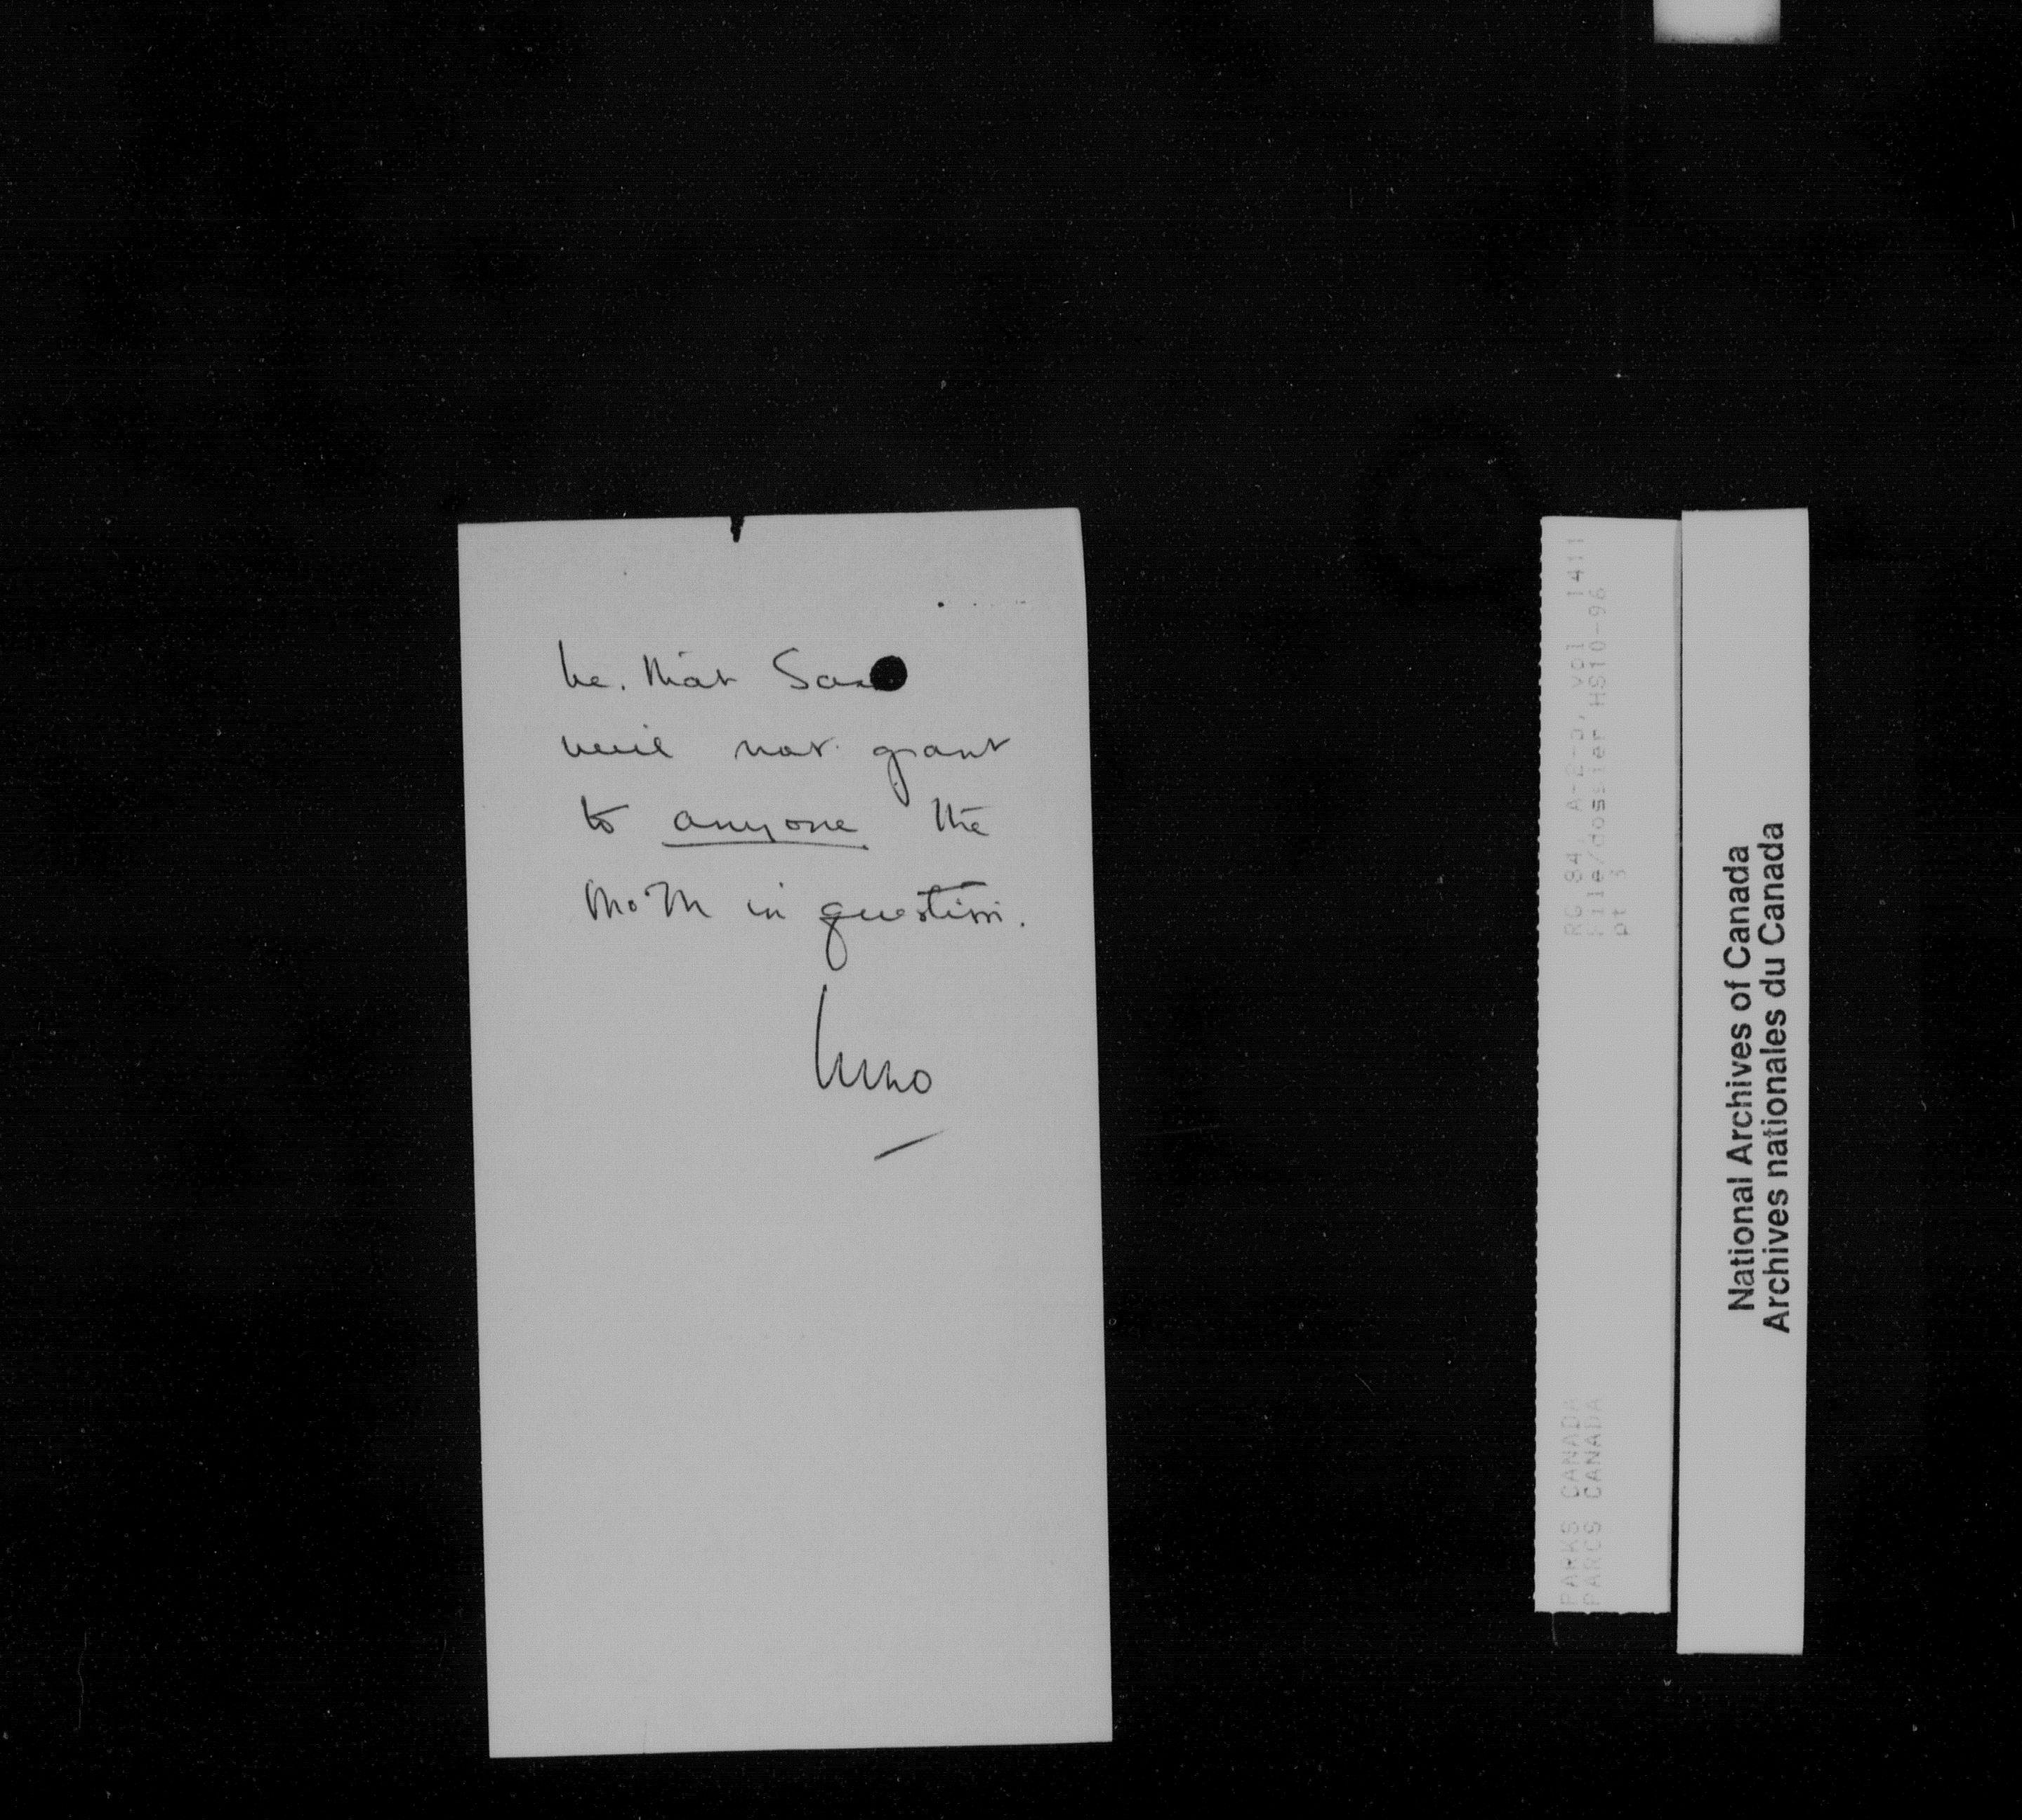 be. that Sask
will not grant
to anyone the
MoTM in question.
National Archives of Canada
Archives nationales du Canada
RG 84, A-2-a, Vol 1411
File/dossier HS10-96
pt 3
PARKS CANADA
PARCS CANADA